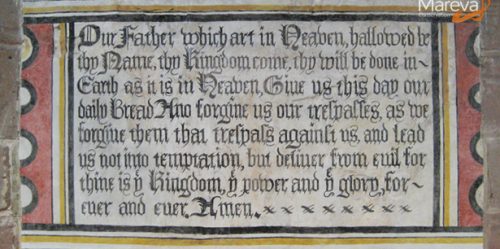 Mareva
Our Father which art in Heaven, hallowed be
thy Name, thy Kingdom come, thy will be done in-
Earth as it is in Heaven, Giue us this day our
daily Bread And forgiue us our treſpaſſes, as we
forgiue them that treſpaſs againſt us, and lead
us not into temptation, but deliuer from euil, for
thine is yͤ Kingdom, yͤ power and yͤ glory, for-
euer and euer. Amen.